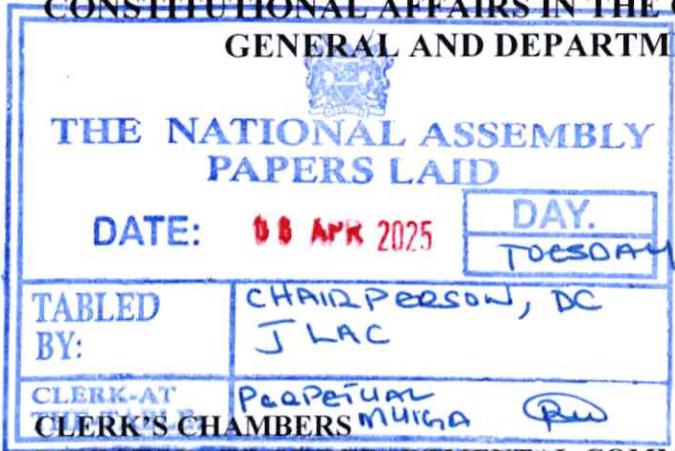 CONSTITUTIONAL AFFAIRS IN THE
GENERAL AND DEPARTM
THE NATIONAL ASSEMBLY
PAPERS LAID
DATE: 08 APR 2025
DAY.
TUESDAY
TABLED
BY:
CHAIRPERSON, DC
JLAC
CLERK-AT
THE-TABLE:
PERPETUAL
MUIGA
CLERK'S CHAMBERS